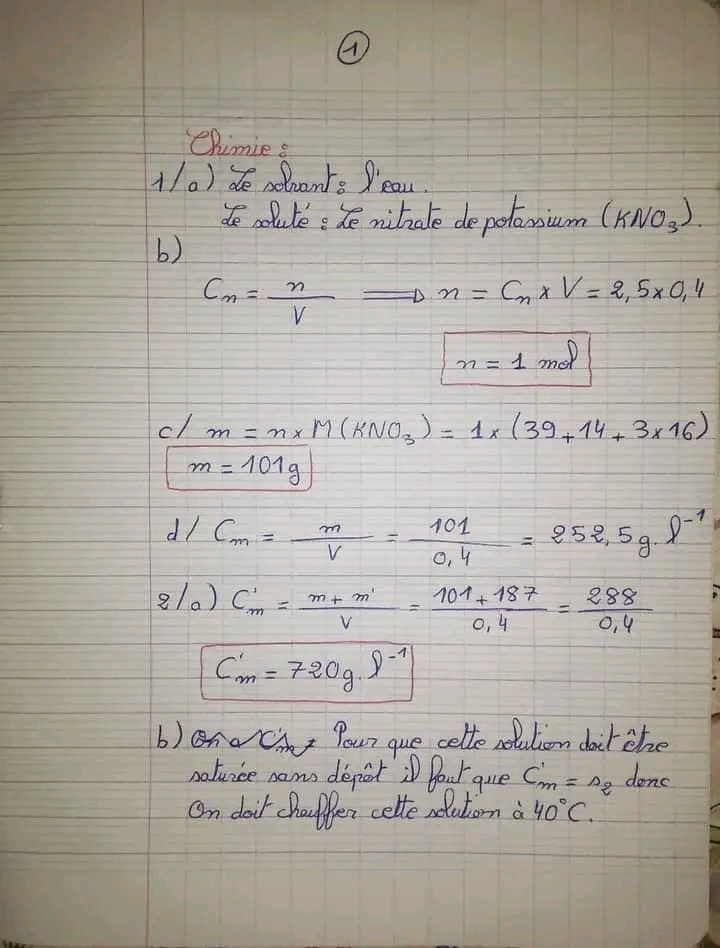 1
Chimie :
1/a) Le solvant : l'eau.
Le soluté : Le nitrate de potassium (KNO₃).
b)
Cₙ = n/V ⟹ n = Cₙ × V = 2,5 × 0,4
n = 1 mol
c/ m = n × M(KNO₃) = 1 × (39 + 14 + 3 × 16)
m = 101g
d/ Cₘ = m/V = 101/0,4 = 252,5 g. l⁻¹
2/a) C'ₘ = m + m'/V = 101 + 187/0,4 = 288/0,4
C'ₘ = 720 g. l⁻¹
b) Pour que cette solution doit être
saturée sans dépôt il faut que C'ₘ = s₂ donc
On doit chauffer cette solution à 40°C.